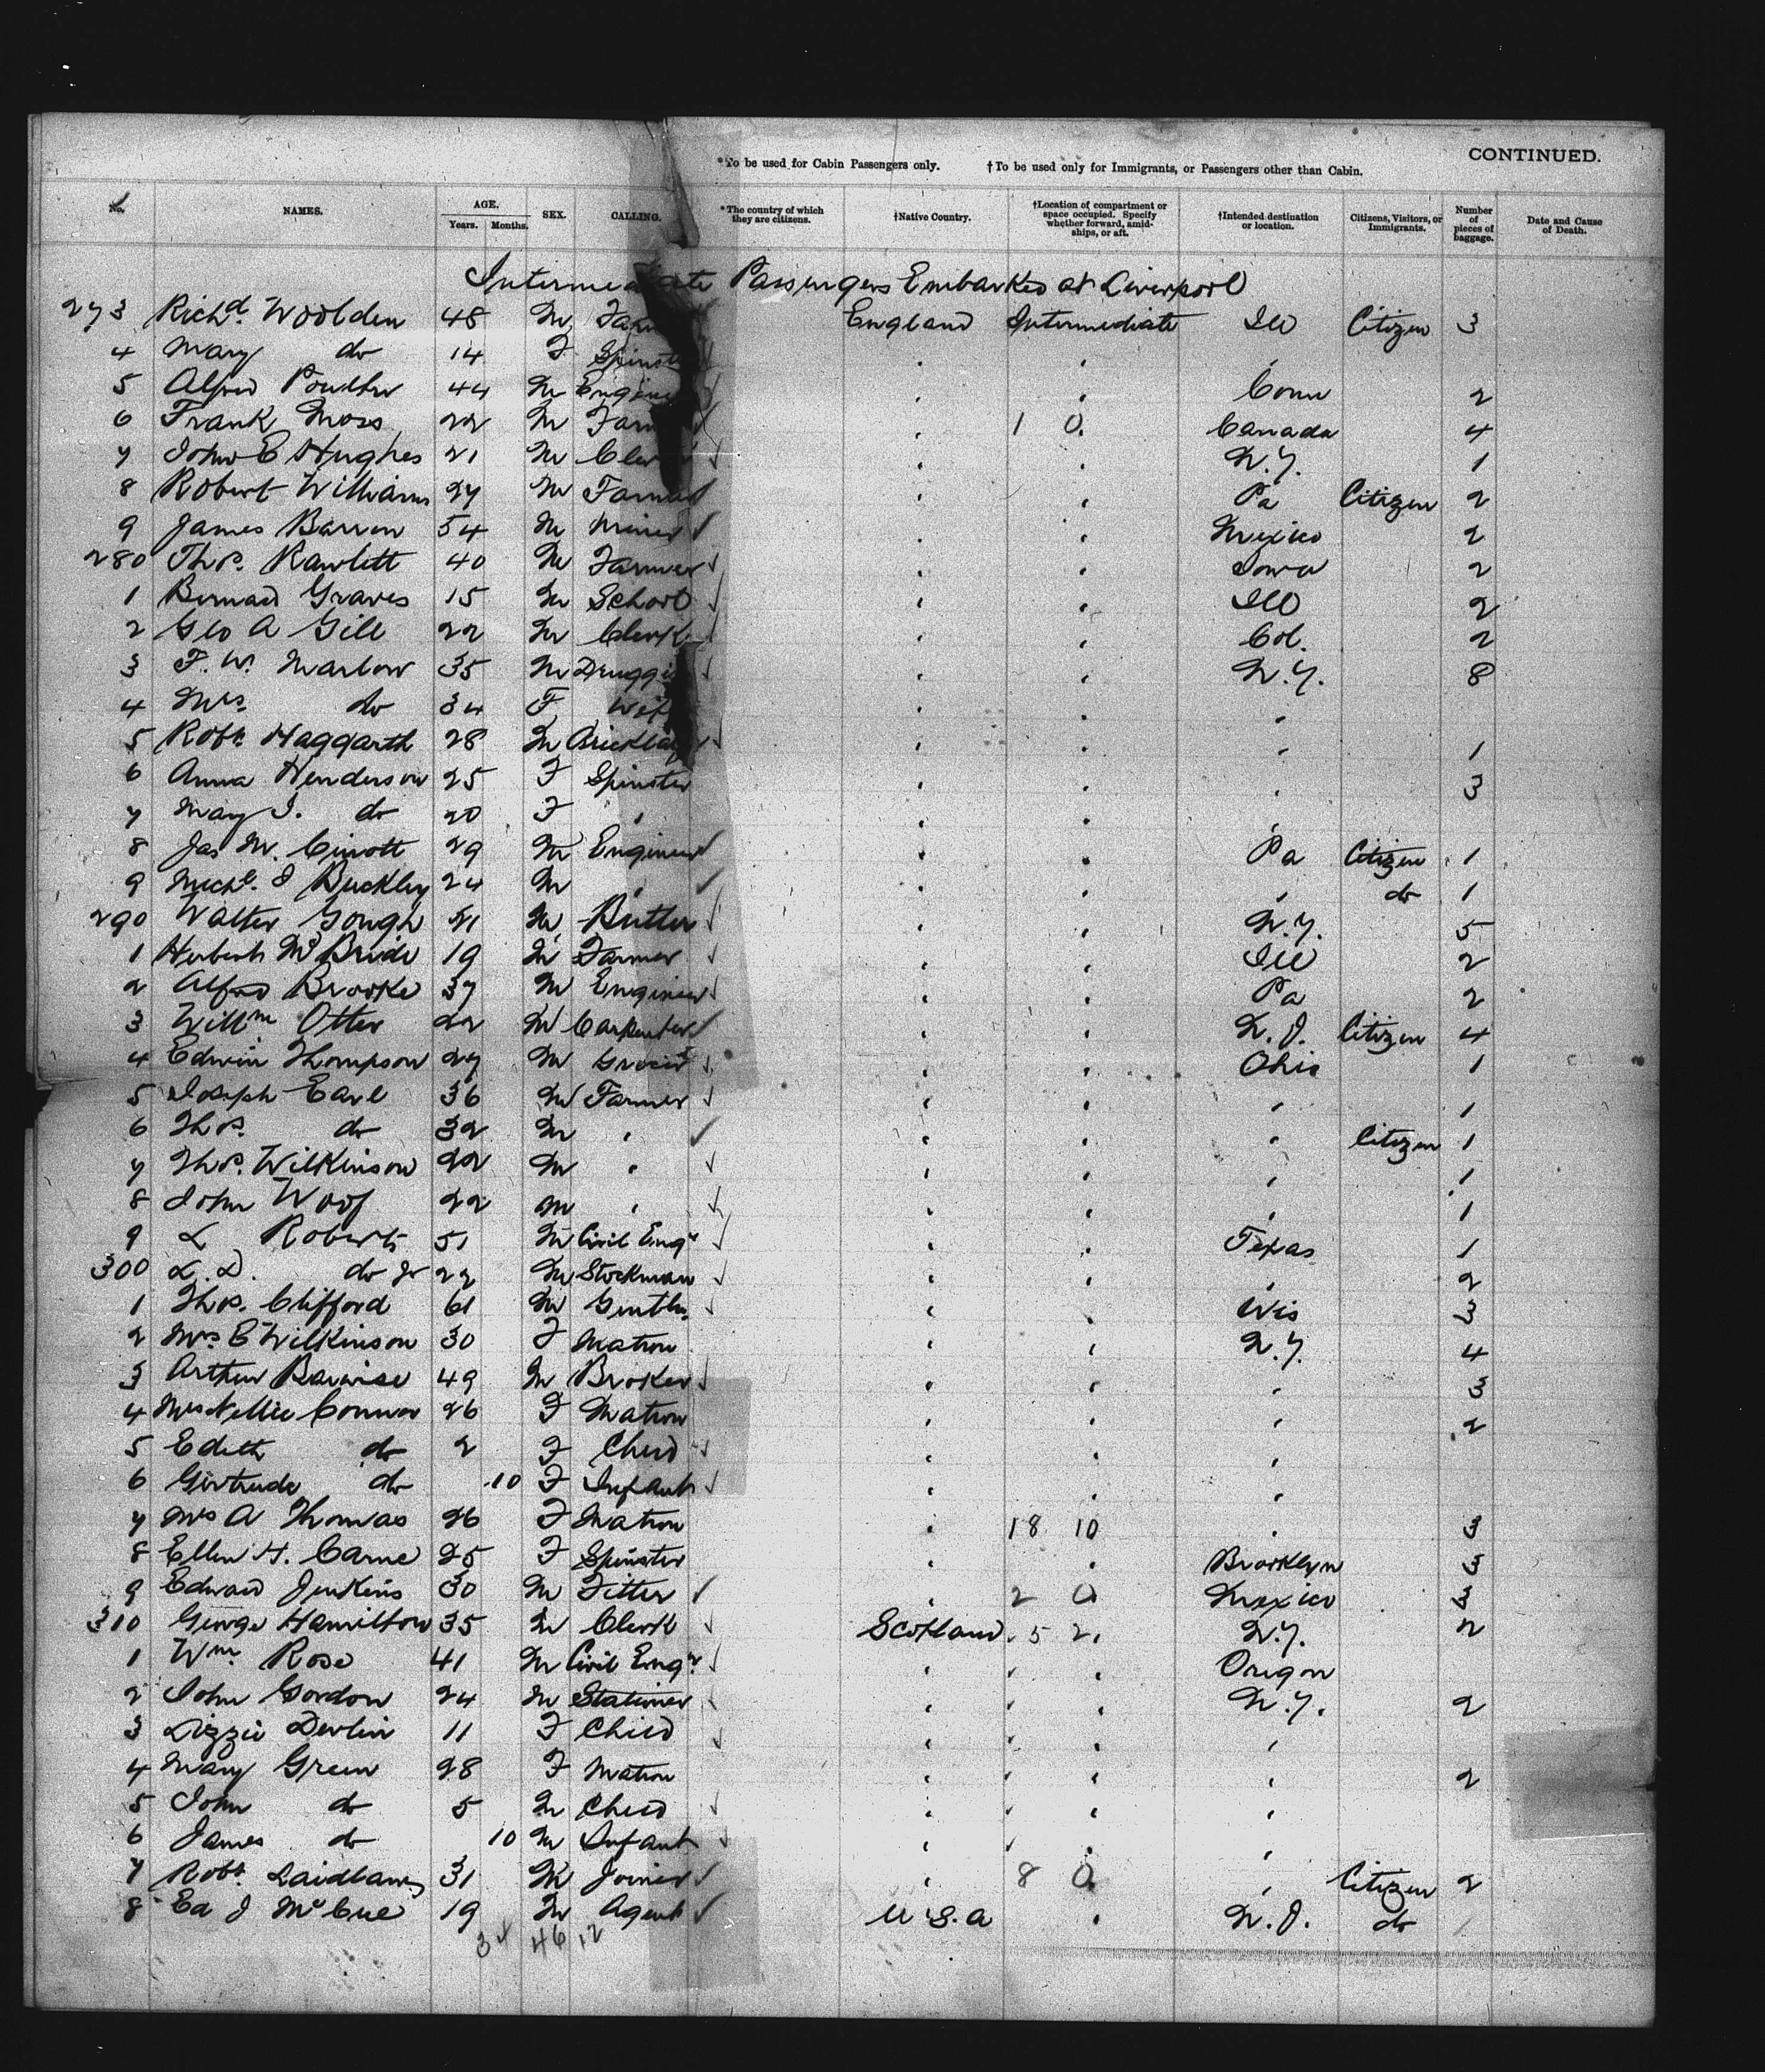 CONTINUED.
*To be used for Cabin Passengers only. †To be used only for Immigrants, or Passengers other than Cabin.
No. NAMES. AGE. Years. Months. SEX. CALLING. *The country of which they are citizens. †Native Country. †Location of compartment or space occupied. Specify whether forward, amidships, or aft. †Intended destination or location. Citizens, Visitors, or Immigrants. Number of pieces of baggage. Date and Cause of Death.
Intermediate Passengers Embarked at Liverpool
273 Richd. Woolden 48 M England Intermediate Ill Citizen 3
4 Mary do 14 F Spinster
5 Alfred 44 M Engineer Conn 2
6 Frank Moss 22 M Farmer 1 0 Canada 4
7 John E Hughes 21 M Clerk N.Y. 1
8 Robert Williams 27 M Farmer Pa Citizen 2
9 James Barron 54 M Miner Mexico 2
280 Thos. Rawlett 40 M Farmer Iowa 2
1 Bernard Graves 15 M School Ill 2
2 Geo A Gill 22 M Clerk Col. 2
3 F. W. Marlow 35 M Druggist N.Y. 8
4 Mrs. do 34 F Wife
5 Robt. Haggarth 28 M Bricklayer 1
6 Anna Henderson 25 F Spinster 3
7 May J. do 20 F
8 Jas M. 29 M Engineer Pa Citizen 1
9 Michl. J Buckley 24 M do 1
290 Walter Gough M Butler N.Y. 5
1 Herbert McBride 19 M Farmer Ill 2
2 Alfred Brooke 37 M Engineer Pa 2
3 Willm Otter 22 M Carpenter N.J. Citizen 4
4 Edwin Thompson 27 M Ohio 1
5 Joseph Earl 36 M Farmer 1
6 Thos. do 32 M Citizen 1
7 Thos. Wilkinson 22 M 1
8 John Woof 22 M 1
9 L Roberts 51 M Civil Engr Texas 1
300 L. D. do Jr 22 M Stockman 2
1 Thos. Clifford 61 M Gentln. Wis 3
2 Mrs. E Wilkinson 30 F Matron N.Y. 4
3 Arthur Barwise 49 M Broker 3
4 Mrs Nellie Connor 26 F Matron 2
5 Edith do 2 F Child
6 Gertrude do 10 F Infant
7 Mrs A Thomas 26 F Matron 18 10 3
8 Ellen H. Carne 25 F Spinster Brooklyn 3
9 Edward Jenkins 30 M Fitter 2 0 Mexico 3
310 George Hamilton 35 M Clerk Scotland 5 2 N.Y. 2
1 Wm. Rose 41 M Civil Engr. Oregon
2 John Gordon 24 M Stationer N.Y. 2
3 Lizzie Devlin 11 F Child
4 Mary Green 28 F Matron 2
5 John do 5 M Child
6 James do 10 M Infant
7 Robt. Laidlaw 31 M Joiner 8 0 Citizen 2
8 Ed J McCue 19 M Agent U.S.A N.J. do
34 46 12